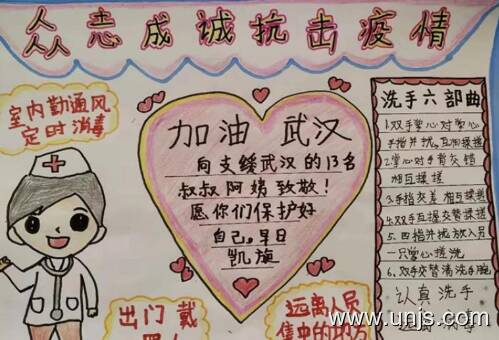 众志成诚抗击疫情
室内勤通风
定时消毒
加油 武汉
向支缓武汉的13名
叔叔阿姨致敬!
愿你们保护好
自己,早日
凯旋
洗手六部曲
1.双手掌心对掌心
手指并拢,互相揉搓
2.掌心对手背交错
相互揉搓
3.手指交差 相互揉搓
4.双手互握交替揉搓
5.四指并拢放入另
一只掌心搓洗
6.双手交替清洗手腕
认真洗手
出门 戴
远离人员
集中的地方
www.unjs.com